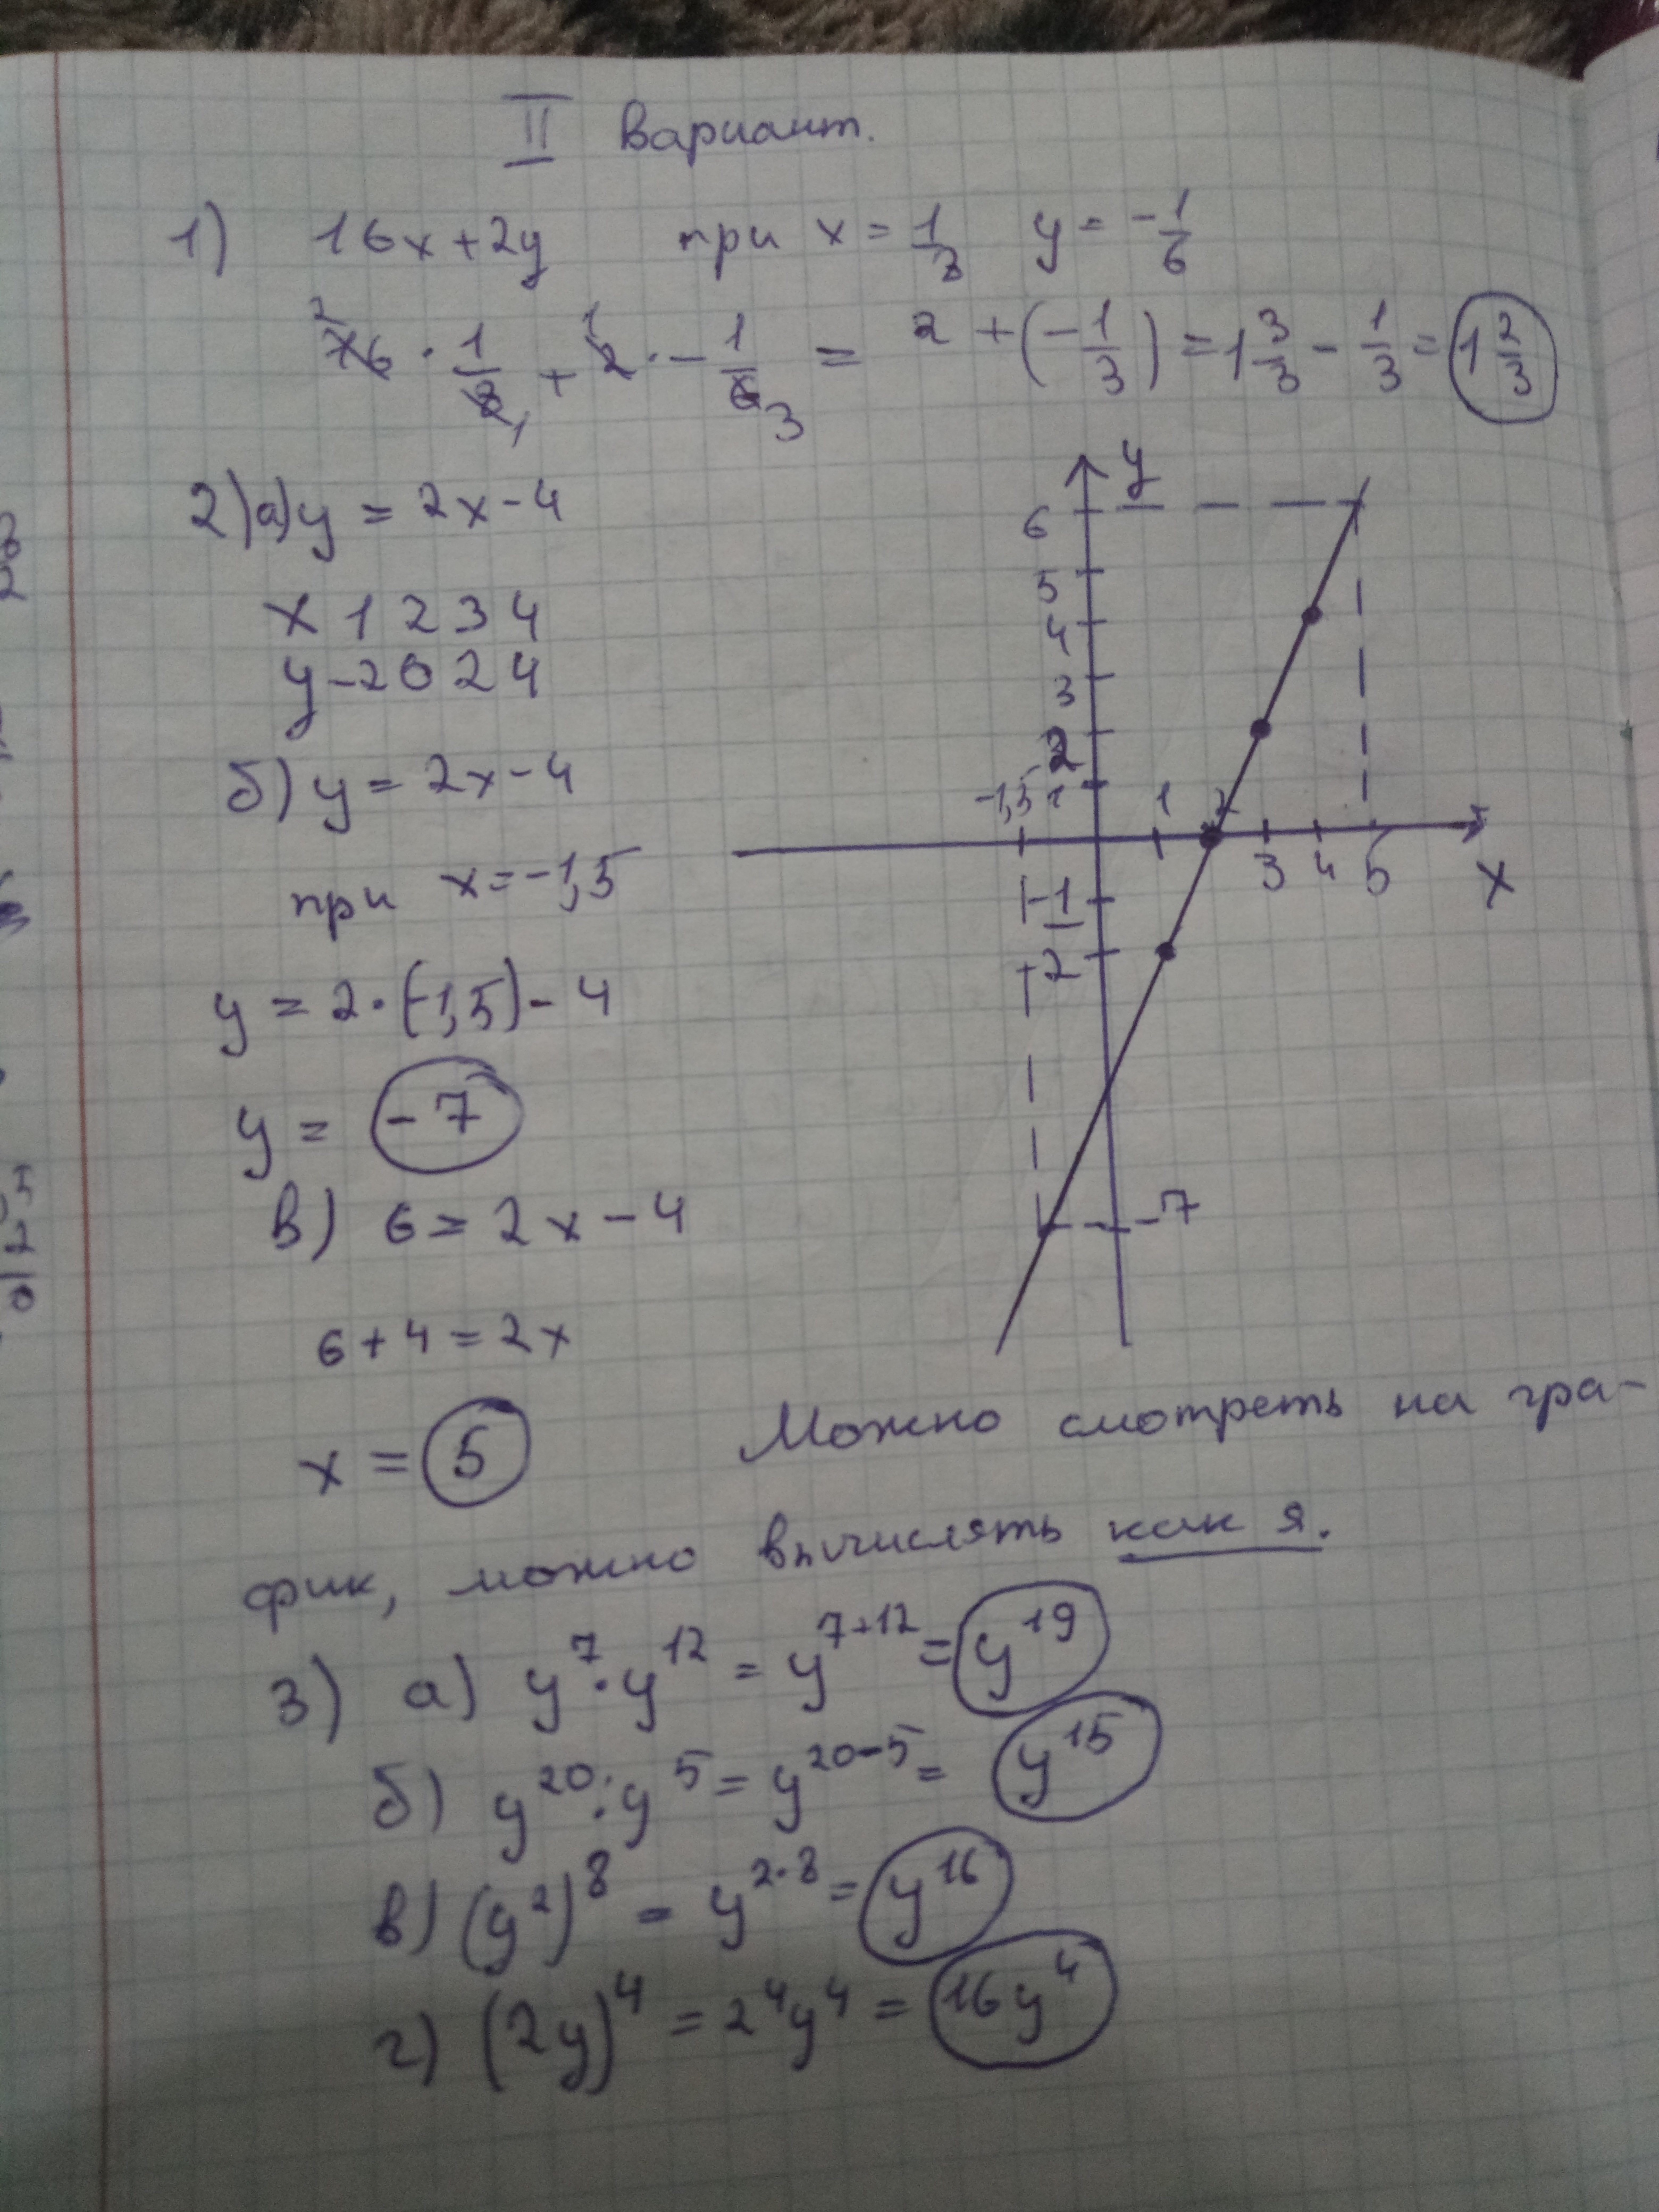 II Вариант.
1) 16x+2y при x=1/8 y=-1/6
16 · 1/8 + 2 · -1/6 = 2 + (-1/3) = 1 3/3 - 1/3 = 1 2/3
2) а) y = 2x-4
x 1 2 3 4
y -2 0 2 4
б) y = 2x-4
при x=-1,5
y = 2·(-1,5)-4
y = -7
в) 6 = 2x-4
6+4=2x
x = 5
y
6
5
4
3
2
1
-1,5
1
2
3
4
5
x
-1
-2
-7
Можно смотреть на гра-
фик, можно вычислять как я.
3) а) y⁷·y¹² = y⁷⁺¹² = y¹⁹
б) y²⁰:y⁵ = y²⁰⁻⁵ = y¹⁵
в) (y²)⁸ = y²·⁸ = y¹⁶
г) (2y)⁴ = 2⁴y⁴ = 16y⁴